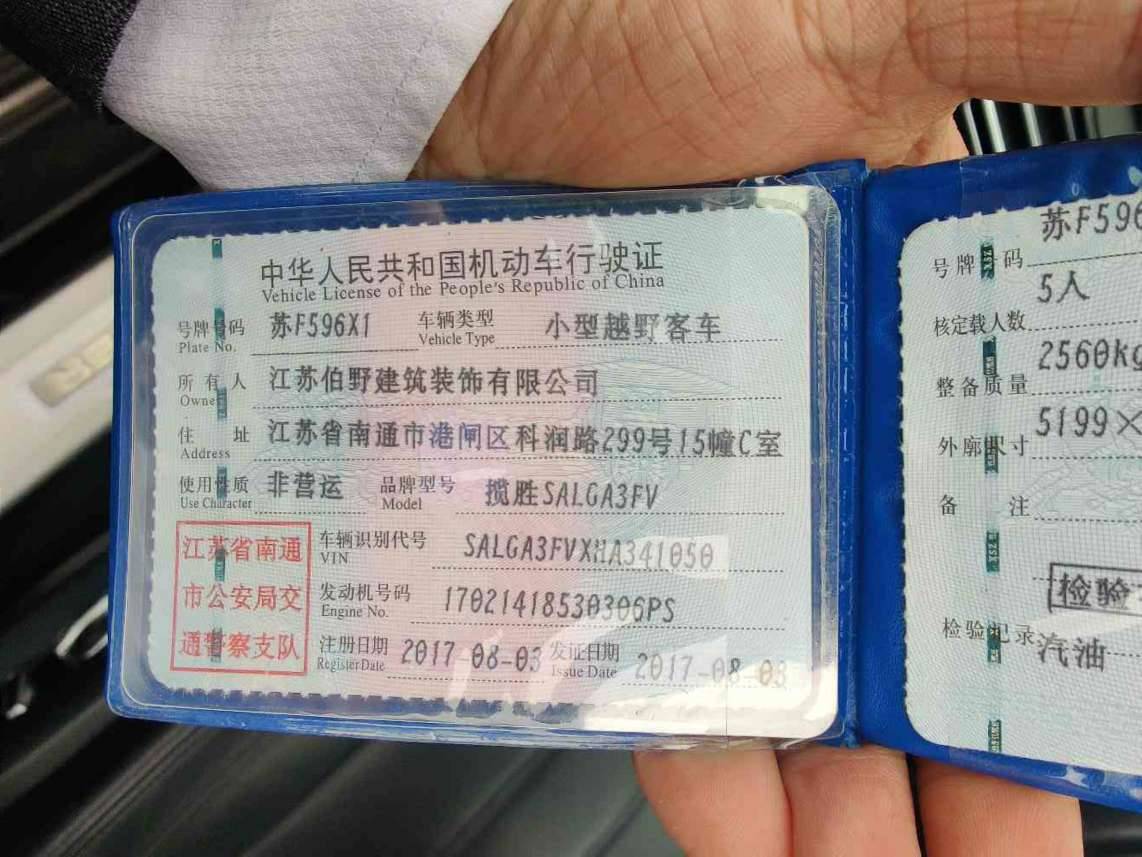 中华人民共和国机动车行驶证
Vehicle License of the People's Republic of China
号牌号码 苏F596X1 车辆类型 小型越野客车
Plate No. Vehicle Type
所有人 江苏伯野建筑装饰有限公司
Owner
住址 江苏省南通市港闸区科润路299号15幢C室
Address
使用性质 非营运 品牌型号 揽胜SALGA3FV
Use Character Model
江苏省南通
市公安局交
通警察支队
车辆识别代号 SALGA3FVXHA341050
VIN
发动机号码 17021418530306PS
Engine No.
注册日期 2017-08-03 发证日期 2017-08-03
Register Date Issue Date
号牌号码 苏F596
核定载人数 5人
整备质量 2560kg
外廓尺寸 5199×
备注
检验
检验记录 汽油